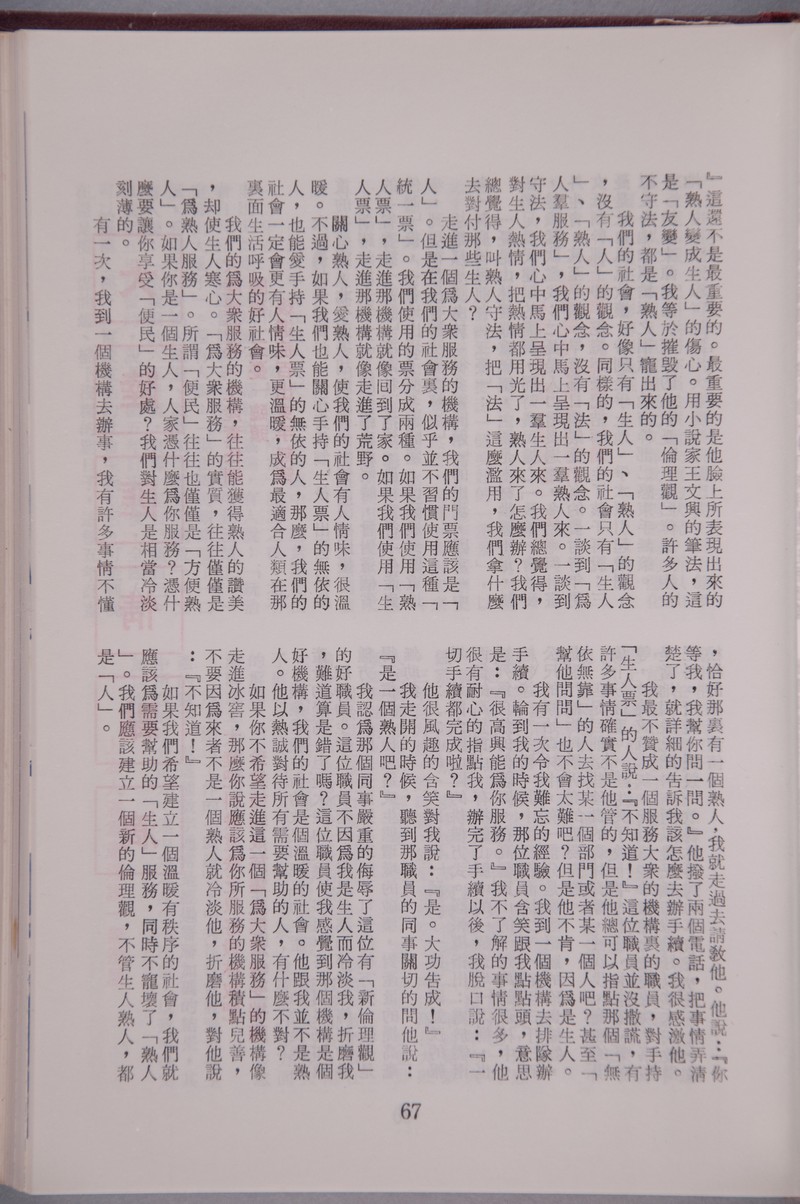 』這還不是最重要的。最重要的是他臉上所表現出來的
「熟人變成生人」的傷心。用小說家王文興的筆法，這
是「友變」。我等於摧毀了他的「倫理觀」。許多人的
不守法，都是「熟人」寵出來的。
我們的社會，好像只有「生人」、「熟人」的觀念
，沒有「人」的觀念。同樣的，我們的社會只有「生人
」、「熟人」的觀念，沒有「法」的觀念。一談到「為
人羣服務」，我們心中馬上呈現出一羣熟人來。一談到
守法，我們心中馬上呈現出一羣生人來。我們總覺得，
對生人熱情，把熱情都用光了，熟人來了怎麼辦？我們
總覺得，叫熟人守法，把「法」這麼濫用，我們拿什麼
去對付那些生人？
走進一個為大衆服務的機構，我們的門票應該是「
人」。但是在我們的社會裏，似乎並不習慣使用這種「
統一票」。我們使用的票分成兩種。如果我們使用「熟
人票」，走進那機構就像回到了家。如果我們使用「生
人票」，走進那機構就像走進了荒野。
關心熟人，愛熟人，使我們的社會有人情味，很溫
暖。不過，如果我們也能關心手持「生人票」的無依的
人，也能愛手持「生人票」的無依的人，那麼，我們的
社會一定會更有人情味，更溫暖，成為最適合人類在那
裏面生活呼吸的好社會。
我們的為大衆服務的機構，往往能獲得熟人的讚美
，却使生人寒心。「為大衆服務」的實質，往往僅僅是
「為熟人服務」。所謂「便民」往往也僅僅是「方便熟
人」。如果你是一個生人，人家憑什麼為你服務？憑什
麼要讓你享受「便民」的好處？我們對生人是相當冷淡
刻薄的。
有一次，我到一個機構去辦事，我有許多事情不懂
，恰好那裏有一個熟人，我就走過去請教他。他說：『你
等我，我幫你問一問。』他撥了兩個電話，把事情弄清
楚了，就詳細的告訴我該怎麼去辦手續。我很感激他。
我最不贊成一個服務大衆的機構裏的職員，對手持
「生人票」的人說：『不知道！』這位職員並沒撒謊，有
許多事情確實不是他管的，但是他總可以指點那個「無
依無靠」的人去找某一個部門或者某一個人吧？甚至「
幫他問問」也不會太難吧？但是他不肯，因為是生人。
我有一次令我難忘的經驗。我到一個機構去排隊辦
手續。輪到我的時候，那位職員含笑跟我點點頭，意思
是：『很高興能為你服務。』我不了解的事情很多，他
很有耐心的指點我，辦完了手續以後，我脫口說：『一
切手續都完成啦？』
他很風趣的含笑對我說：『是。大功告成！』
我走開的時候，聽到那職員的同事關切的問他說：
『是一個熟人吧？』
我認為那個同事嚴重的侮辱了這位有「新倫理觀」
的好職員。這位職員不因為我是生人而冷淡我，折磨我
，難道算是錯了嗎？這位職員使我感覺到那個機構是個
好機構，我們的社會是個溫暖的社會。他跟我並不是熟
人。他以熱誠對待所有需要幫助的人，有什麼不對？
如果你不希望走進這一個「為大衆服務」的機構像
走進冰窖，那麼你說應該為你所服務的機構積點兒善，
不要因為來者不是一個熟人就冷淡他，折磨他，對他說
：『不知道！』
如果我們希望建立一個溫暖有秩序的社會，我們就
應該為需要幫助的「生人」服務，同時不寵壞了「熟人
」。我們應該建立一個新的倫理觀，不管生人熟人，都
是「人」。
67